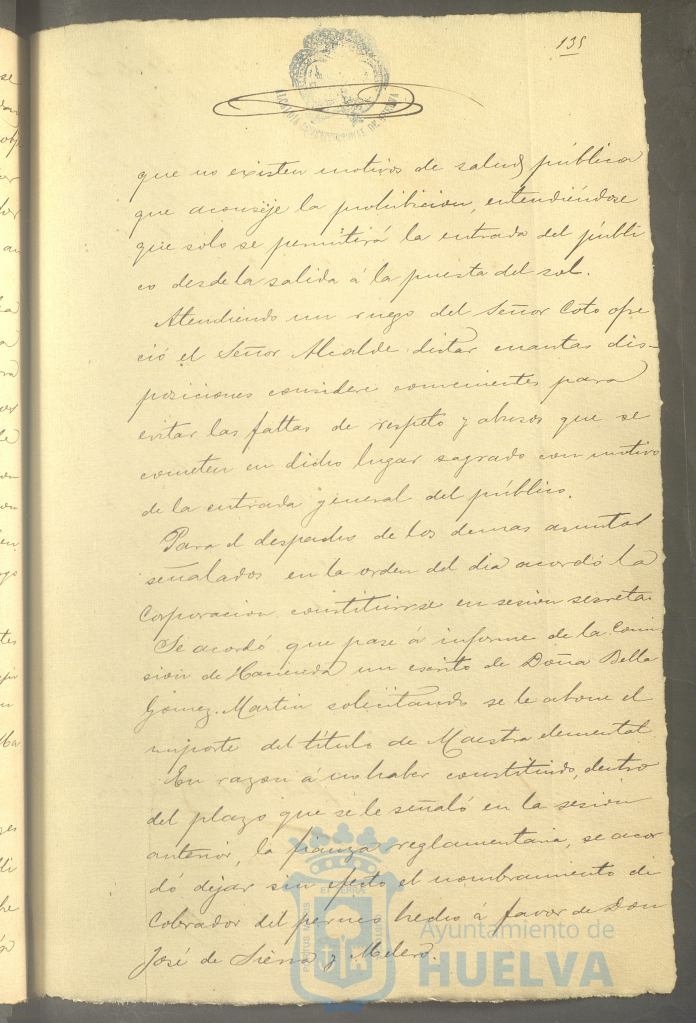 135
que no existen motivos de salud pública
que aconseje la prohibicion, entendiéndose
que sólo se permitirá la entrada del públi
co desde la salida á la puesta del sol.
Atendiendo un ruego del Señor Coto ofre
ció el Señor Alcalde dictar cuantas dis-
posiciones considere convenientes para
evitar las faltas de respeto y abusos que se
cometen en dicho lugar sagrado con motivo
de la entrada general del público.
Para el despacho de los demas asuntos
señalados en la orden del dia acordó la
Corporacion constituirse en sesion secreta.
Se acordó que pase á informe de la Comi
sion de Hacienda un escrito de Doña Bella
Gómez Martin solicitando se le abone el
importe del título de Maestra elemental
En razon á no haber constituido, dentro
del plazo que se le señaló en la sesion
anterior, la fianza reglamentaria, se acor
dó dejar sin efecto el nombramiento de
Cobrador del hecho á favor de Don
José de Sierra y Melero.
Ayuntamiento de
HUELVA